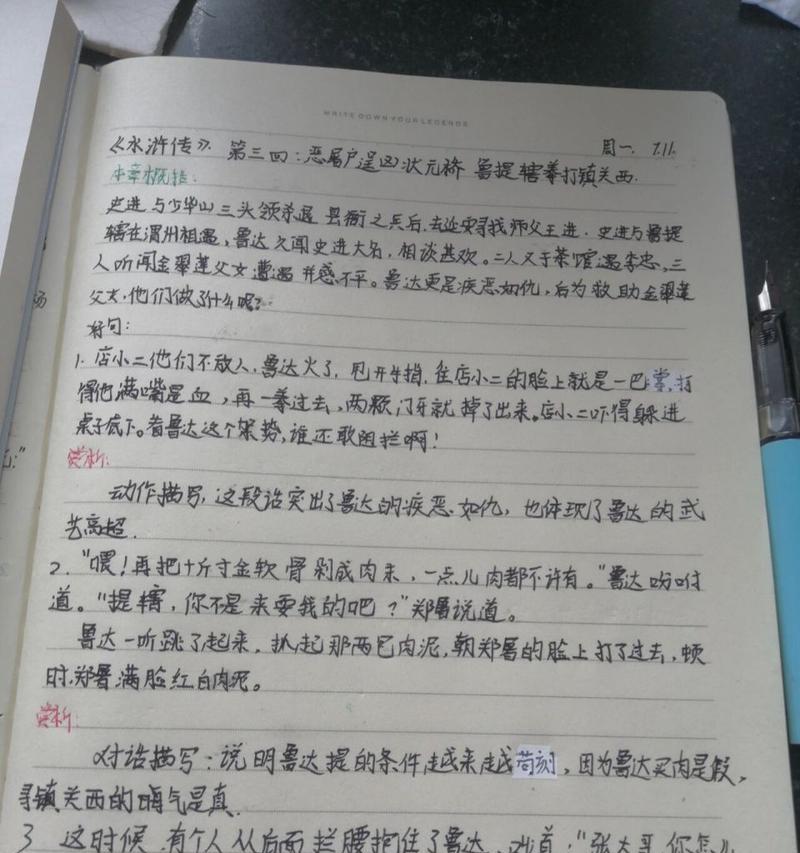 WRITE DOWN YOUR LEGENDS
《水浒传》. 第三回:恶屠户逞凶状元桥 鲁提辖拳打镇关西. 周一. 7.11.
本章概括:
史进与少华山三头领杀退县衙之兵后,去延安寻找师父王进.史进与鲁提
辖在渭州相遇,鲁达久闻史进大名,相谈甚欢。二人又于茶馆遇李忠,三
人听闻金翠莲父女遭遇 并感不平。鲁达更是疾恶如仇,后为救助金翠莲
父女,他们做了什么呢?
好句:
1. 店小二他们不放人,鲁达火了,甩开手指,往店小二的脸上就是一巴掌,打
得他满嘴是血,再一拳过去,两颗门牙就掉了出来。店小二吓得躲进
桌子底下。看鲁达这个架势,谁还敢阻拦啊!
赏析:
动作描写,这段话突出了鲁达的疾恶如仇,也体现了鲁达的武
艺高超.
2. "喂!再把十斤寸金软骨剁成肉末,一点儿肉都不许有。"鲁达吩咐
道。"提辖,你不是来耍我的吧?"郑屠说道。
鲁达一听跳了起来,扒起那两包肉泥,朝郑屠的脸上打了过去,顿
时,郑屠满脸红白肉泥。
赏析:
对话描写:说明鲁达提的条件越来越苛刻,因为鲁达买肉是假,
寻镇关西的晦气是真.
3 这时候,有个人从后面拦腰抱住了鲁达,戏道:"张大哥,你怎么